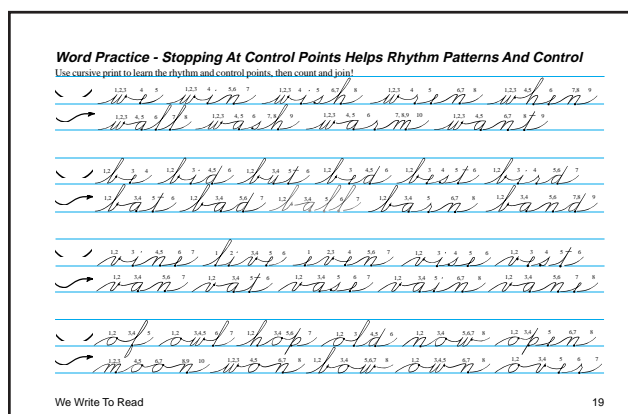 Word Practice - Stopping At Control Points Helps Rhythm Patterns And Control
Use cursive print to learn the rhythm and control points, then count and join!
we win wish wren when
wall wash warm want
be bid but bed best bird
bat bad ball barn band
vine live even vise vest
van vat vase vain vane
of owl hop old now open
moon won bow own over
We Write To Read 19